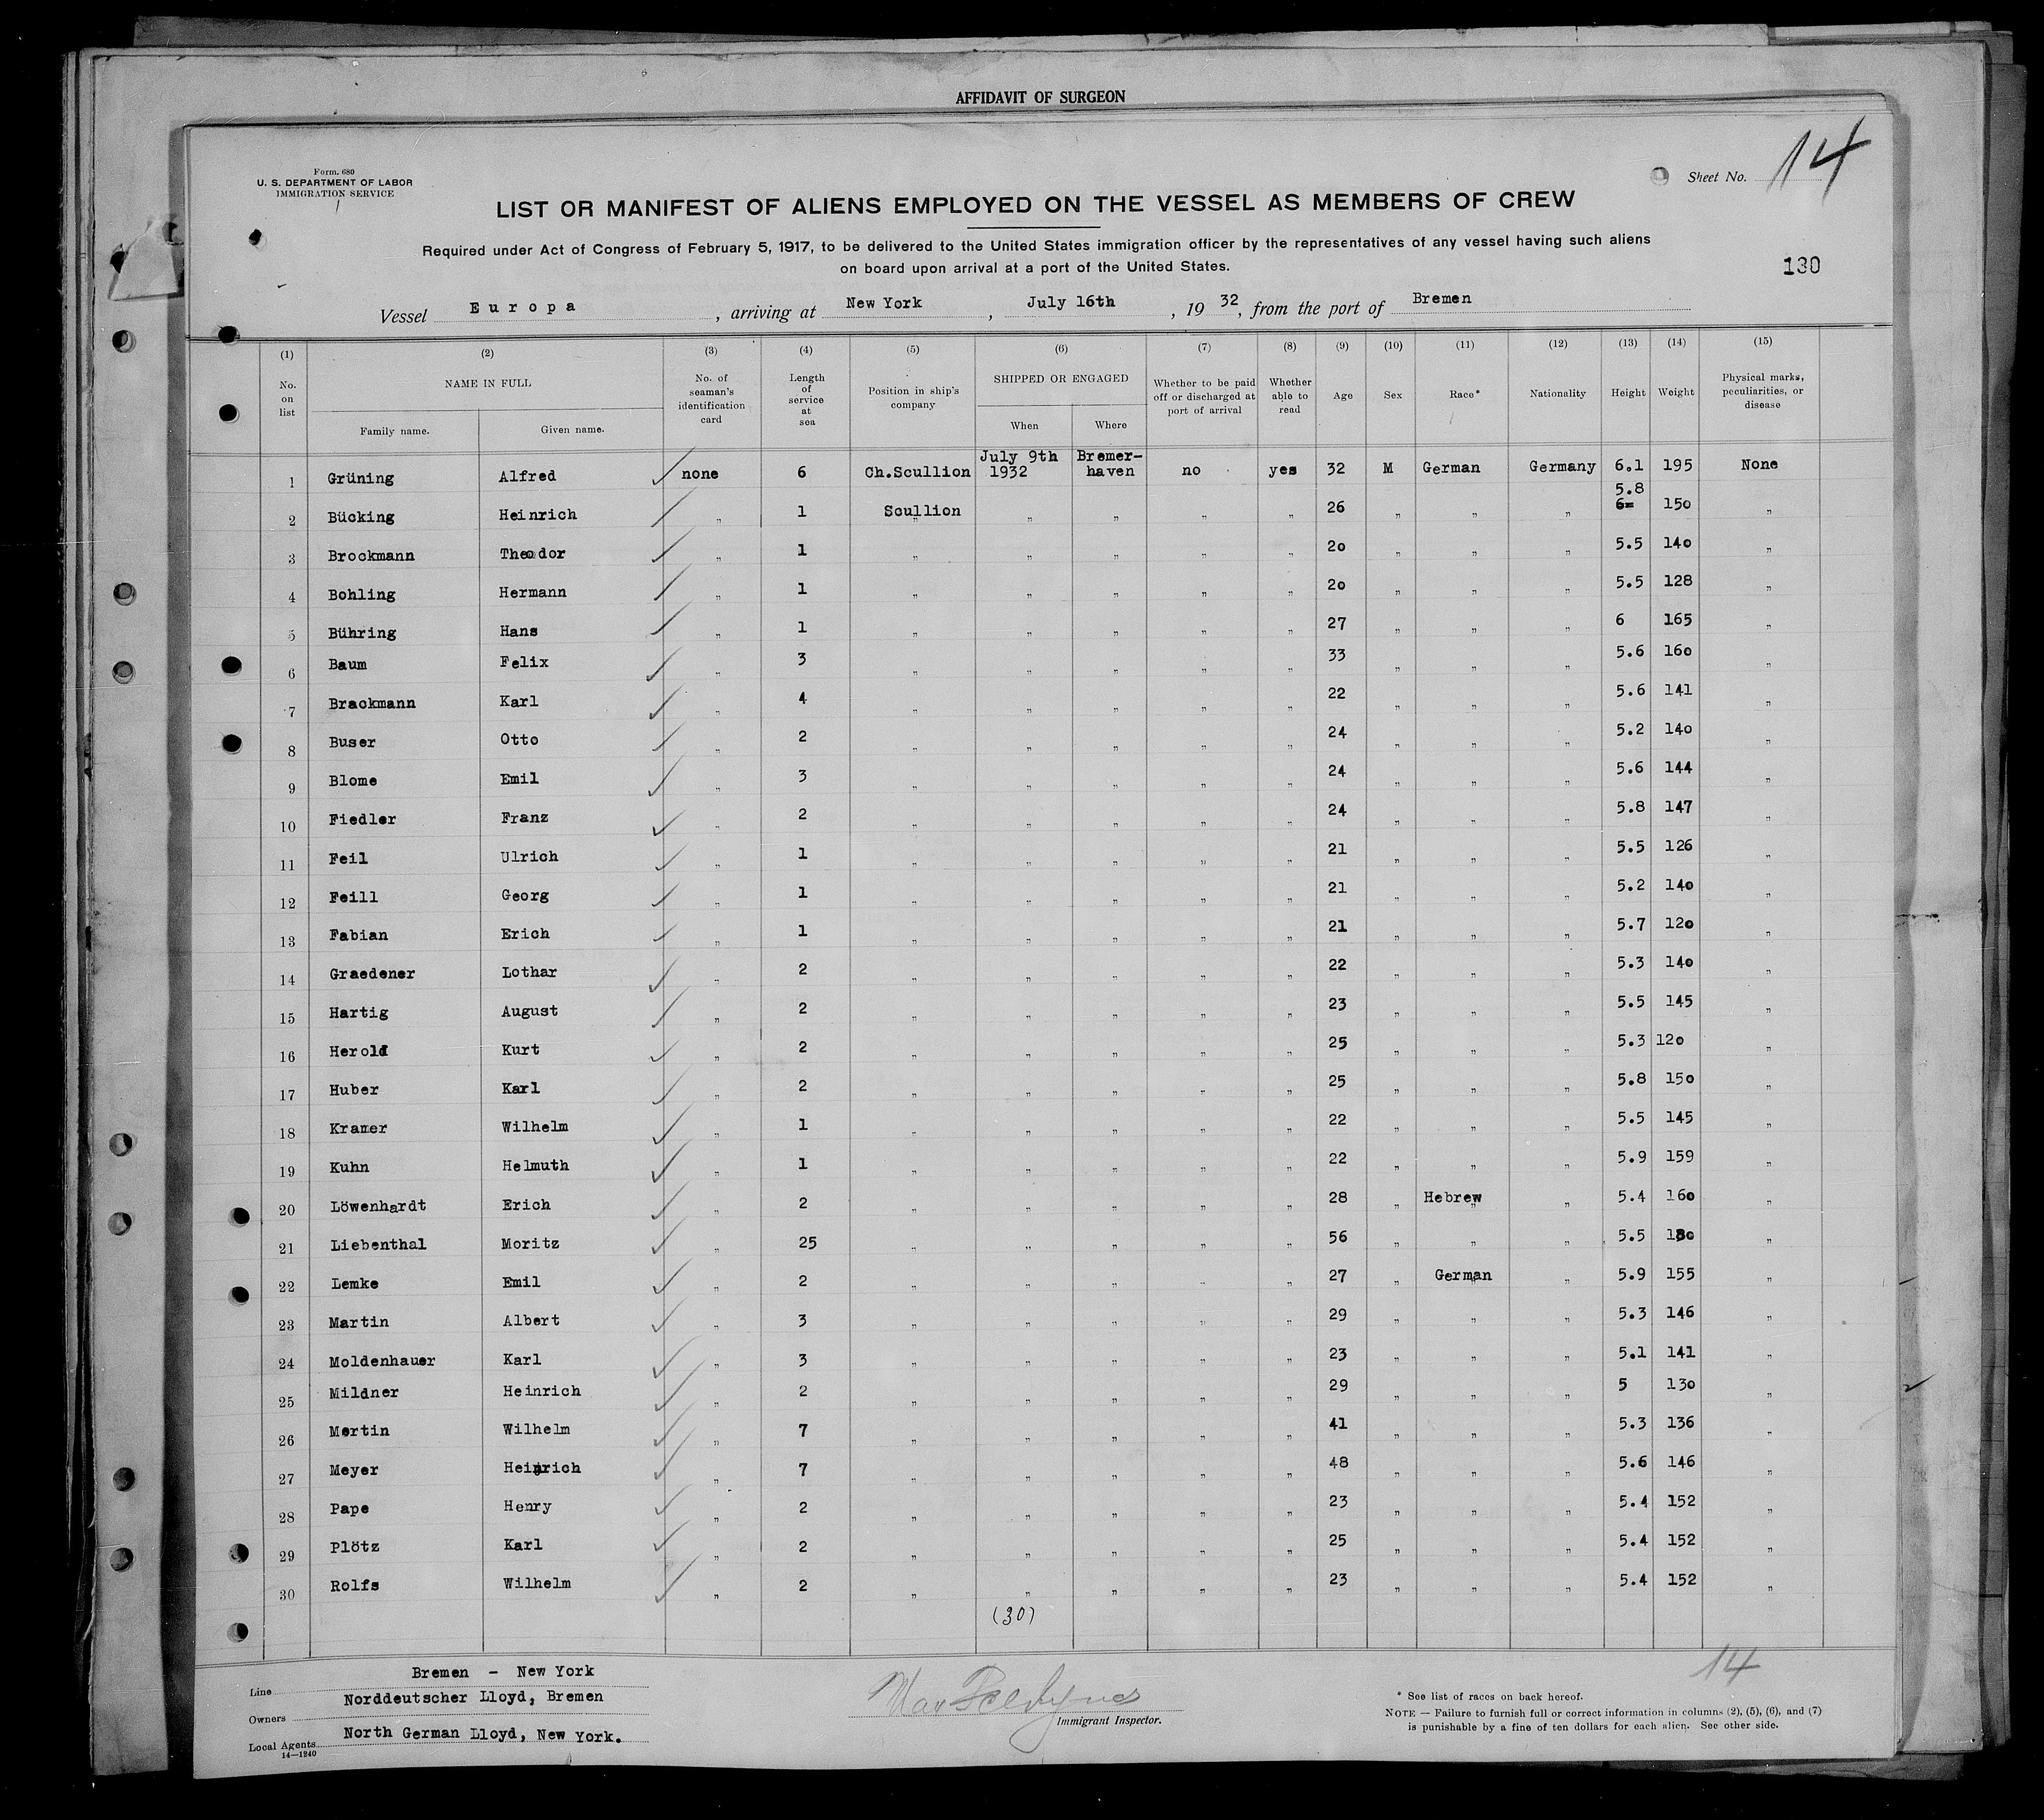 AFFIDAVIT OF SURGEON
Form. 680
U. S. DEPARTMENT OF LABOR
IMMIGRATION SERVICE
Sheet No. 14
LIST OR MANIFEST OF ALIENS EMPLOYED ON THE VESSEL AS MEMBERS OF CREW
Required under Act of Congress of February 5, 1917, to be delivered to the United States immigration officer by the representatives of any vessel having such aliens
on board upon arrival at a port of the United States.
130
Vessel Europa, arriving at New York, July 16th, 1932, from the port of Bremen
(1) (2) (3) (4) (5) (6) (7) (8) (9) (10) (11) (12) (13) (14) (15)
No. on list NAME IN FULL Family name. Given name. No. of seaman's identification card Length of service at sea Position in ship's company SHIPPED OR ENGAGED When Where Whether to be paid off or discharged at port of arrival Whether able to read Age Sex Race* Nationality Height Weight Physical marks, peculiarities, or disease
1 Grüning Alfred none 6 Ch.Scullion July 9th 1932 Bremer-haven no yes 32 M German Germany 6.1 195 None
2 Bücking Heinrich " 1 Scullion " " " " 26 " " " 5.8 150 "
3 Brockmann Theodor " 1 " " " " " 20 " " " 5.5 140 "
4 Bohling Hermann " 1 " " " " " 20 " " " 5.5 128 "
5 Bühring Hans " 1 " " " " " 27 " " " 6 165 "
6 Baum Felix " 3 " " " " " 33 " " " 5.6 160 "
7 Brackmann Karl " 4 " " " " " 22 " " " 5.6 141 "
8 Buser Otto " 2 " " " " " 24 " " " 5.2 140 "
9 Blome Emil " 3 " " " " " 24 " " " 5.6 144 "
10 Fiedler Franz " 2 " " " " " 24 " " " 5.8 147 "
11 Feil Ulrich " 1 " " " " " 21 " " " 5.5 126 "
12 Feill Georg " 1 " " " " " 21 " " " 5.2 140 "
13 Fabian Erich " 1 " " " " " 21 " " " 5.7 120 "
14 Graedener Lothar " 2 " " " " " 22 " " " 5.3 140 "
15 Hartig August " 2 " " " " " 23 " " " 5.5 145 "
16 Herold Kurt " 2 " " " " " 25 " " " 5.3 120 "
17 Huber Karl " 2 " " " " " 25 " " " 5.8 150 "
18 Kramer Wilhelm " 1 " " " " " 22 " " " 5.5 145 "
19 Kuhn Helmuth " 1 " " " " " 22 " " " 5.9 159 "
20 Löwenhardt Erich " 2 " " " " " 28 " Hebrew " 5.4 160 "
21 Liebenthal Moritz " 25 " " " " " 56 " " " 5.5 180 "
22 Lemke Emil " 2 " " " " " 27 " German " 5.9 155 "
23 Martin Albert " 3 " " " " " 29 " " " 5.3 146 "
24 Moldenhauer Karl " 3 " " " " " 23 " " " 5.1 141 "
25 Mildner Heinrich " 2 " " " " " 29 " " " 5 130 "
26 Mertin Wilhelm " 7 " " " " " 41 " " " 5.3 136 "
27 Meyer Heinrich " 7 " " " " " 48 " " " 5.6 146 "
28 Pape Henry " 2 " " " " " 23 " " " 5.4 152 "
29 Plötz Karl " 2 " " " " " 25 " " " 5.4 152 "
30 Rolfs Wilhelm " 2 " " " " " 23 " " " 5.4 152 "
(30)
14
Line Bremen - New York
Owners Norddeutscher Lloyd, Bremen
Local Agents North German Lloyd, New York.
14—1240
Immigrant Inspector.
* See list of races on back hereof.
NOTE — Failure to furnish full or correct information in columns (2), (5), (6), and (7)
is punishable by a fine of ten dollars for each alien. See other side.